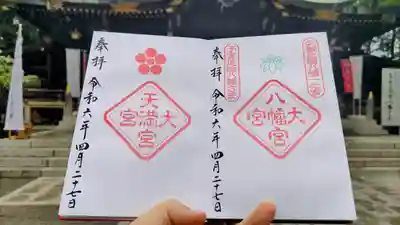 奉拝
大八幡宮
令和六年四月二十七日
奉拝
大天満宮
令和六年四月二十七日